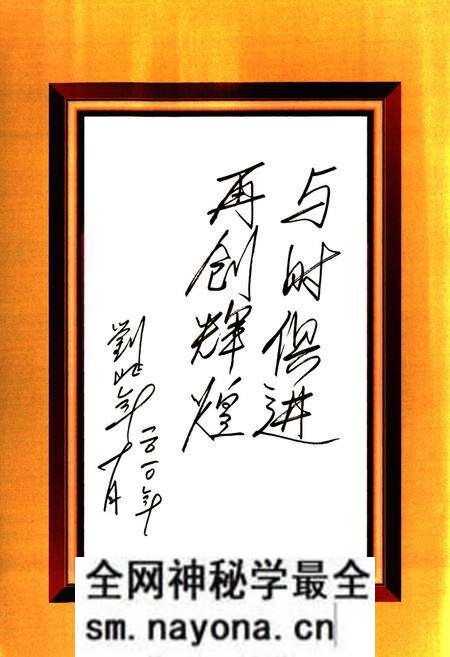 与时俱进
再创辉煌
劉兆年
二〇一〇年
十月
全网神秘学最全
sm.nayona.cn